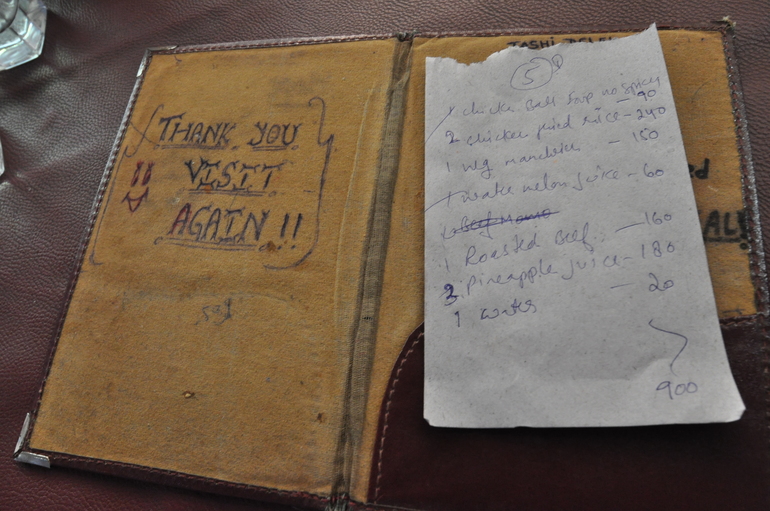 THANK YOU
VISIT
AGAIN !!
TASHI DELEK
5
1 chicken Ball Soup no spicy
— 90
2 chicken fried rice - 240
1 veg manchurian — 150
1 water melon juice - 60
1 Beef Momo
1 Roasted Beef. — 160
3 Pineapple juice - 180
1 water — 20
900
ed
AL!